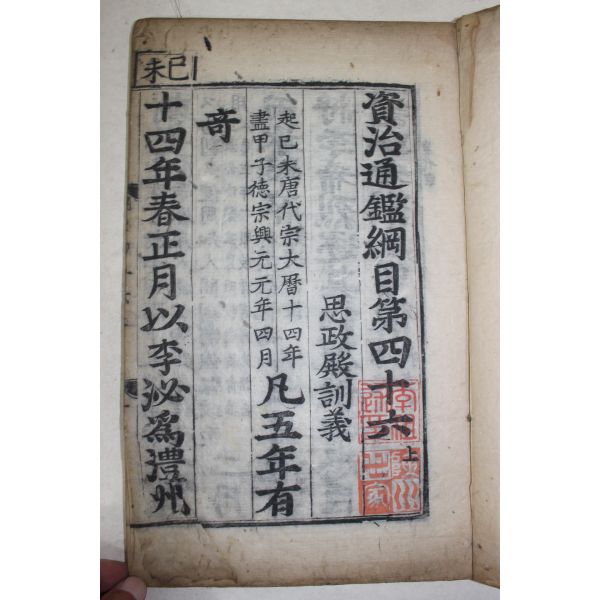 資治通鑑綱目第四十六上
思政殿訓義
起己未唐代宗大曆十四年
盡甲子德宗興元元年四月
凡五年有
奇
己未
十四年春正月以李泌爲澧州